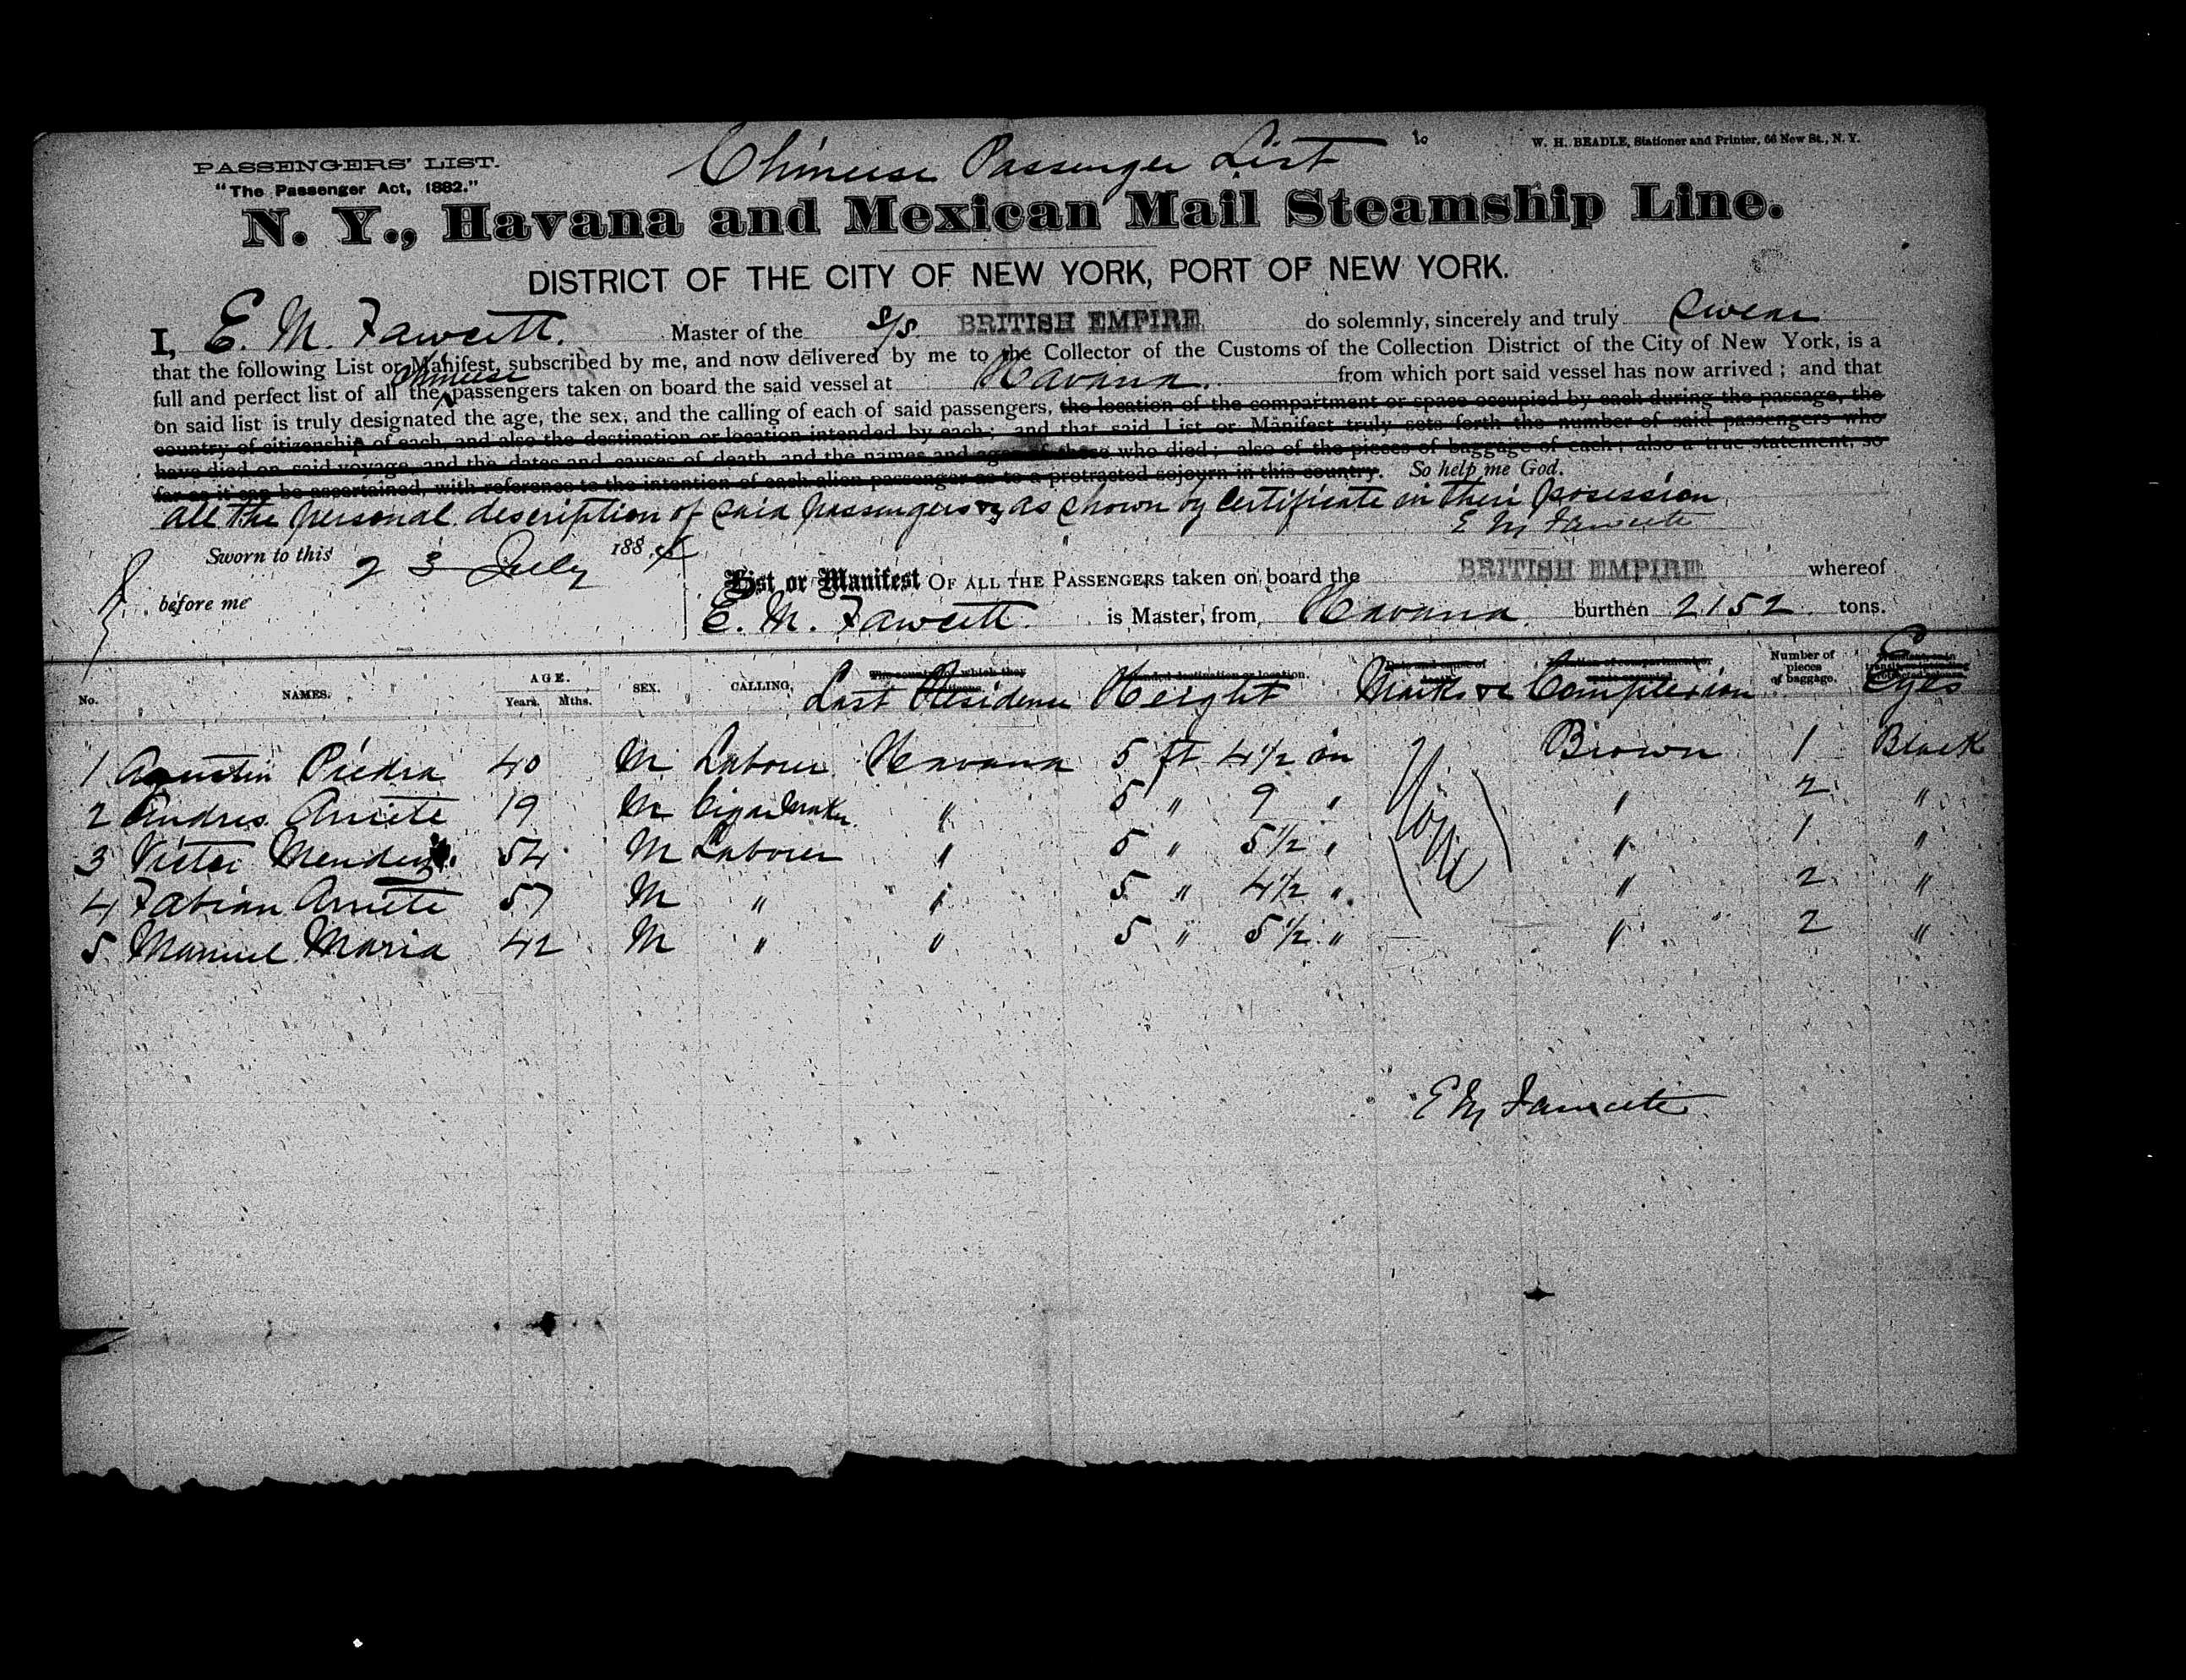 Chinese Passenger List
PASSENGERS' LIST.
W. H. BEADLE, Stationer and Printer, 66 New St., N. Y.
"The Passenger Act, 1882."
N. Y., Havana and Mexican Mail Steamship Line.
DISTRICT OF THE CITY OF NEW YORK, PORT OF NEW YORK.
I, E. M. Fawcett. Master of the S/S. BRITISH EMPIRE do solemnly, sincerely and truly swear
that the following List or Manifest, subscribed by me, and now delivered by me to the Collector of the Customs of the Collection District of the City of New York, is a
full and perfect list of all the Chinese passengers taken on board the said vessel at Havana. from which port said vessel has now arrived; and that
on said list is truly designated the age, the sex, and the calling of each of said passengers, the location of the compartment or space occupied by each during the passage, the
country of citizenship of each, and also the destination or location intended by each; and that said List or Manifest truly sets forth the number of said passengers who
have died on said voyage, and the dates and causes of death, and the names and ages of those who died; also of the pieces of baggage of each; also a true statement, so
far as it can be ascertained, with reference to the intention of each alien passenger as to a protracted sojourn in this country. So help me God.
all the personal description of said passengers as shown by Certificate in their posession
E M Fawcett
Sworn to this 23 July 188
before me
List or Manifest OF ALL THE PASSENGERS taken on board the BRITISH EMPIRE whereof
E. M. Fawcett is Master, from Havana burthen 2152 tons.
No. NAMES. AGE. Years. Mths. SEX. CALLING. Last Residence Height Marks &c Complexion Number of pieces of baggage. Eyes
1 Agustin Piedra 40 M Labourer Havana 5 ft 4½ in Brown 1 Black
2 Andres Arriete 19 M Cigar Maker " 5 " 9 " " 2 "
3 Victor Mendez 54 M Labourer " 5 " 5½ " " 1 "
4 Fabian Arriete 57 M " " 5 " 4½ " " 2 "
5 Manuel Maria 42 M " " 5 " 5½ " " 2 "
E M Fawcett